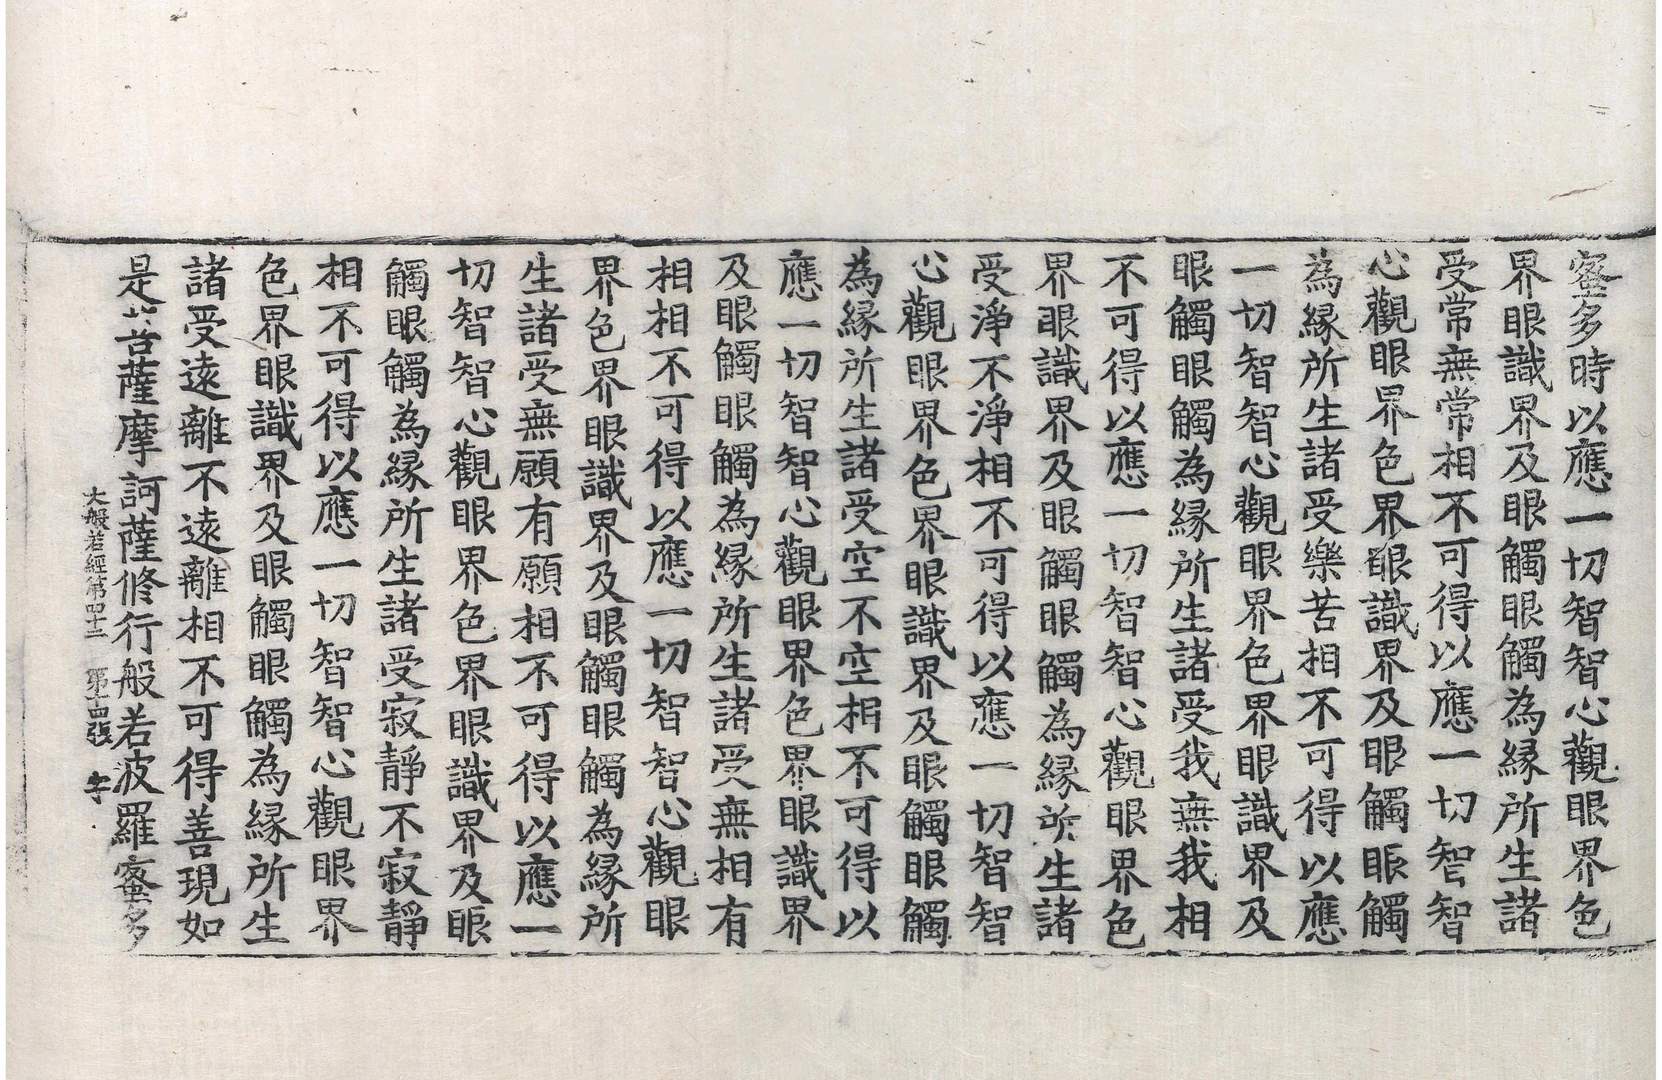 蜜多時以應一切智智心觀眼界色
界眼識界及眼觸眼觸為緣所生諸
受常無常相不可得以應一切智智
心觀眼界色界眼識界及眼觸眼觸
為緣所生諸受樂苦相不可得以應
一切智智心觀眼界色界眼識界及
眼觸眼觸為緣所生諸受我無我相
不可得以應一切智智心觀眼界色
界眼識界及眼觸眼觸為緣所生諸
受淨不淨相不可得以應一切智智
心觀眼界色界眼識界及眼觸眼觸
為緣所生諸受空不空相不可得以
應一切智智心觀眼界色界眼識界
及眼觸眼觸為緣所生諸受無相有
相相不可得以應一切智智心觀眼
界色界眼識界及眼觸眼觸為緣所
生諸受無願有願相不可得以應一
切智智心觀眼界色界眼識界及眼
觸眼觸為緣所生諸受寂靜不寂靜
相不可得以應一切智智心觀眼界
色界眼識界及眼觸眼觸為緣所生
諸受遠離不遠離相不可得善現如
是菩薩摩訶薩修行般若波羅蜜多
大般若經第四十二 第十四張 字